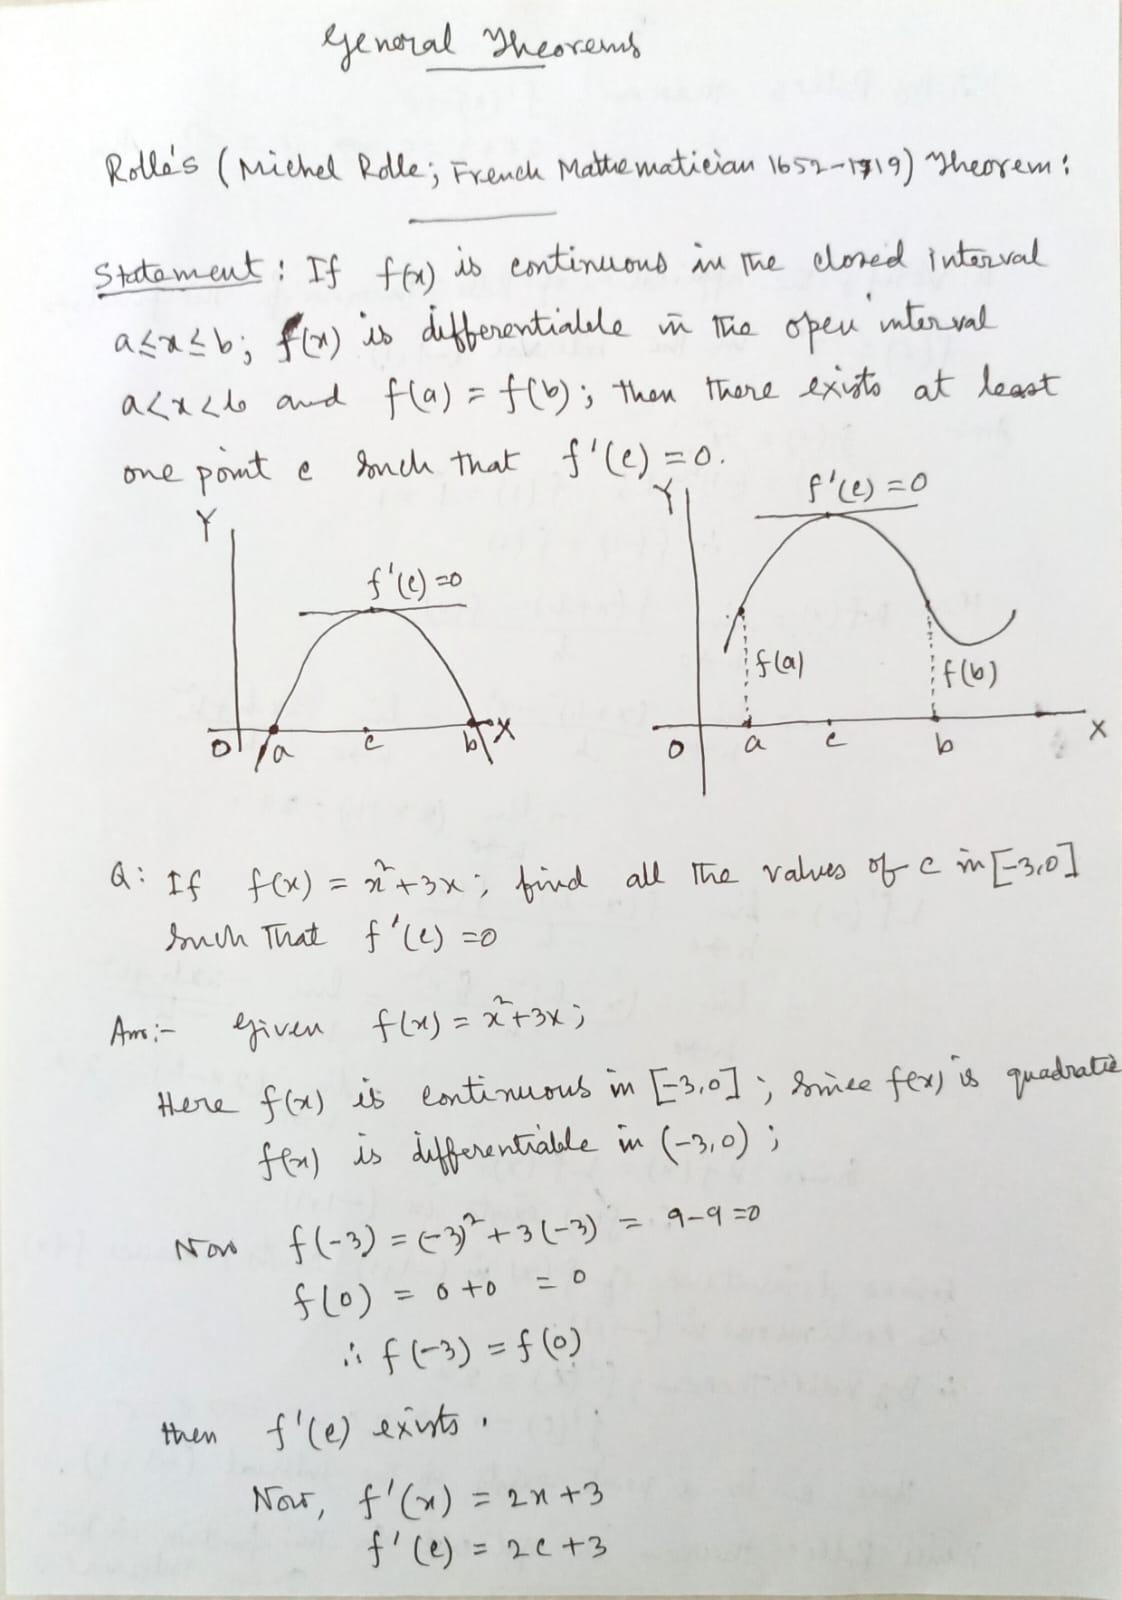 General Theorems
Rolle's (Michel Rolle; French Mathematician 1652-1719) Theorem:
Statement: If f(x) is continuous in the closed interval
a≤x≤b; f(x) is differentiable in the open interval
a<x<b and f(a) = f(b); then there exists at least
one point c such that f'(c) = 0.
Y
f'(c) = 0
O a c b X
Y
f'(c) = 0
f(a) f(b)
O a c b X
Q: If f(x) = x²+3x; find all the values of c in [-3,0]
such that f'(c) = 0
Ans:- Given f(x) = x²+3x;
Here f(x) is continuous in [-3,0]; since f(x) is quadratic
f(x) is differentiable in (-3,0);
Now f(-3) = (-3)²+3(-3) = 9-9=0
f(0) = 0+0 = 0
∴ f(-3) = f(0)
then f'(c) exists.
Now, f'(x) = 2x+3
f'(c) = 2c+3